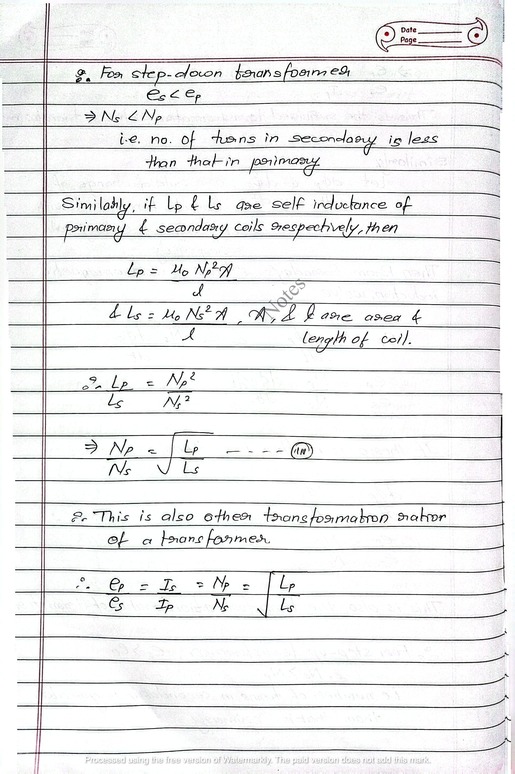 Date
Page
∴ For step-down transformer
es < ep
⇒ Ns < Np
i.e. no. of turns in secondary is less
than that in primary
Similarly, if Lp & Ls are self inductance of
primary & secondary coils respectively, then
Lp = μ₀ Np² A / l
& Ls = μ₀ Ns² A / l , A, & l are area &
length of coil.
Notes
∴ Lp / Ls = Np² / Ns²
⇒ Np / Ns = √(Lp / Ls) - - - - (iii)
∴ This is also other transformation ratior
of a transformer.
∴ ep / es = Is / Ip = Np / Ns = √(Lp / Ls)
Processed using the free version of Watermarkly. The paid version does not add this mark.